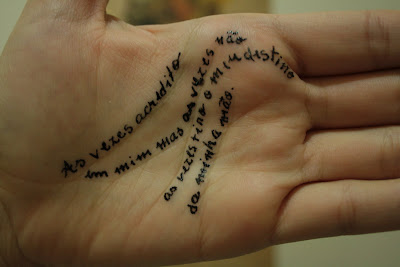 As vezes acredito
em mim mas as vezes não
as vezes tiro o meu destino
da minha mão.